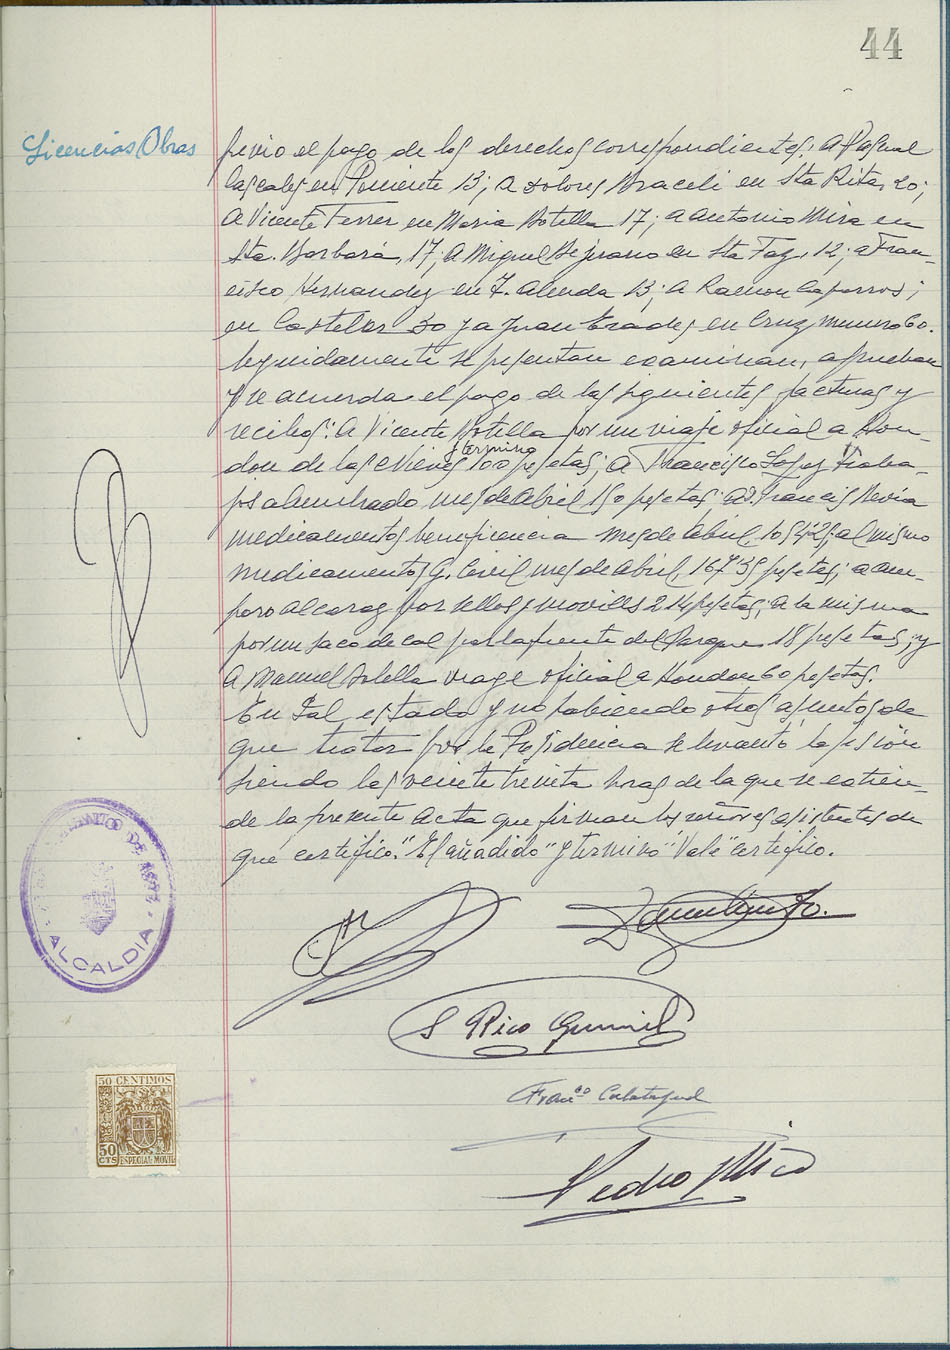 44
Licencias Obras
previo el pago de los derechos correspondientes: a Pascual
Cascales en Poniente 13; a Dolores Braceli en Sta Rita, 20;
a Vicente Ferrer en Maria Botella 17; a Antonio Mira en
Sta. Barbara, 17; a Miguel Bejerano en Sta Faz, 12; a Fran-
cisco Hernandez en F. Alenda 13; a Ramon Caparros;
en Castelar 30 y a Juan Erades en Cruz numero 60.
Seguidamente se presentan examinan, aprueban
y se acuerda el pago de las siguientes facturas y
recibos: A Vicente Botella por un viaje oficial a Hon-
y termino
don de las Nieves 100 pesetas; a Francisco Lopez traba-
jos alumbrado mes de Abril 150 pesetas; a D. Francis
medicamentos beneficencia mes de Abril, al mismo
medicamentos G. Civil mes de Abril, 167'35 pesetas; a am-
paro Alcaraz por sellos y movills 214 pesetas; a la misma
por un saco de cal para la fuente del Parque 18 pesetas; y
a Manuel Botella viage oficial a Hondon 60 pesetas.
En tal estado y no habiendo otros asuntos de
que tratar por la Presidencia se levantó la sesión
siendo las veinte treinta horas de la que se extien-
de la presente acta que firman los señores asistentes de
que certifico." El añadido "y termino" Vale" Certifico.
ALCALDIA
S Rico
Franco Calatayud
Pedro Mira
50 CENTIMOS
50
CTS ESPECIAL MOVIL